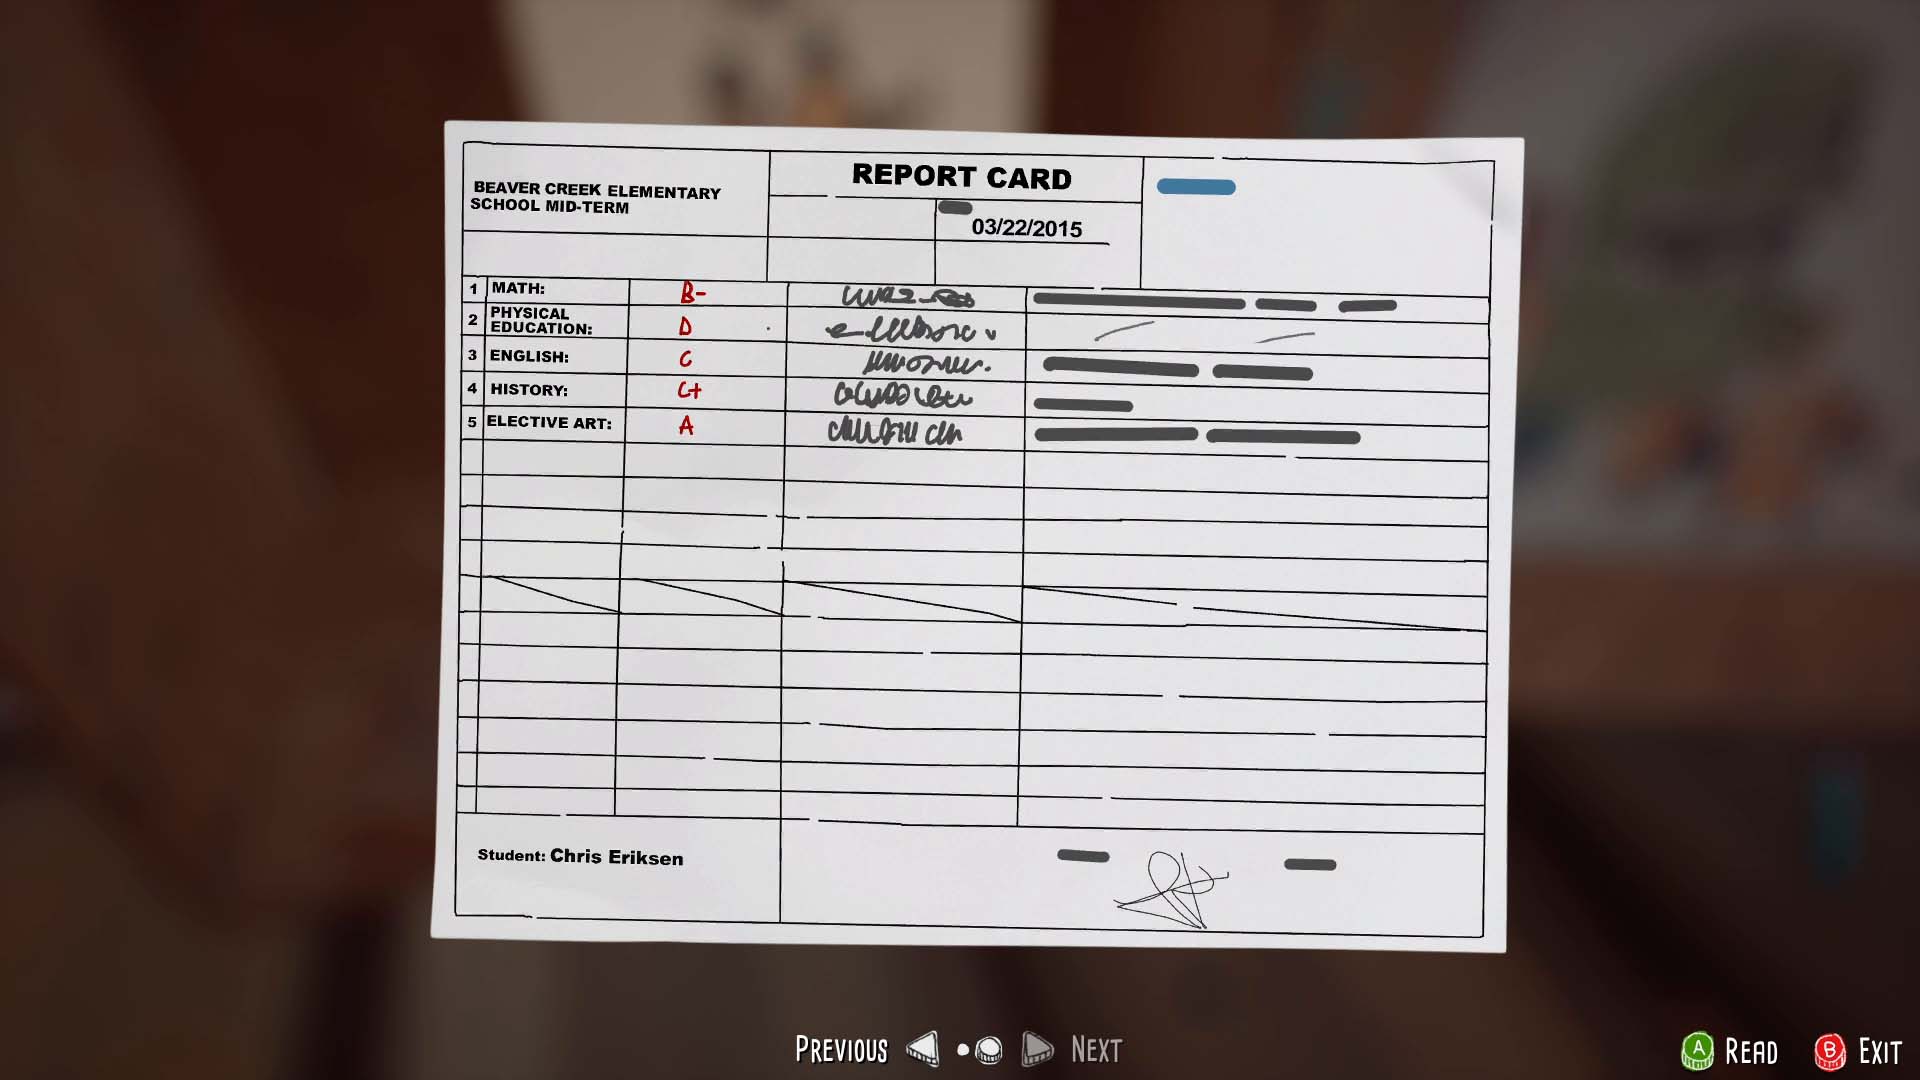 REPORT CARD
BEAVER CREEK ELEMENTARY
SCHOOL MID-TERM
03/22/2015
1 MATH: B-
2 PHYSICAL
EDUCATION: D
3 ENGLISH: C
4 HISTORY: C+
5 ELECTIVE ART: A
Student: Chris Eriksen
PREVIOUS NEXT
A READ B EXIT